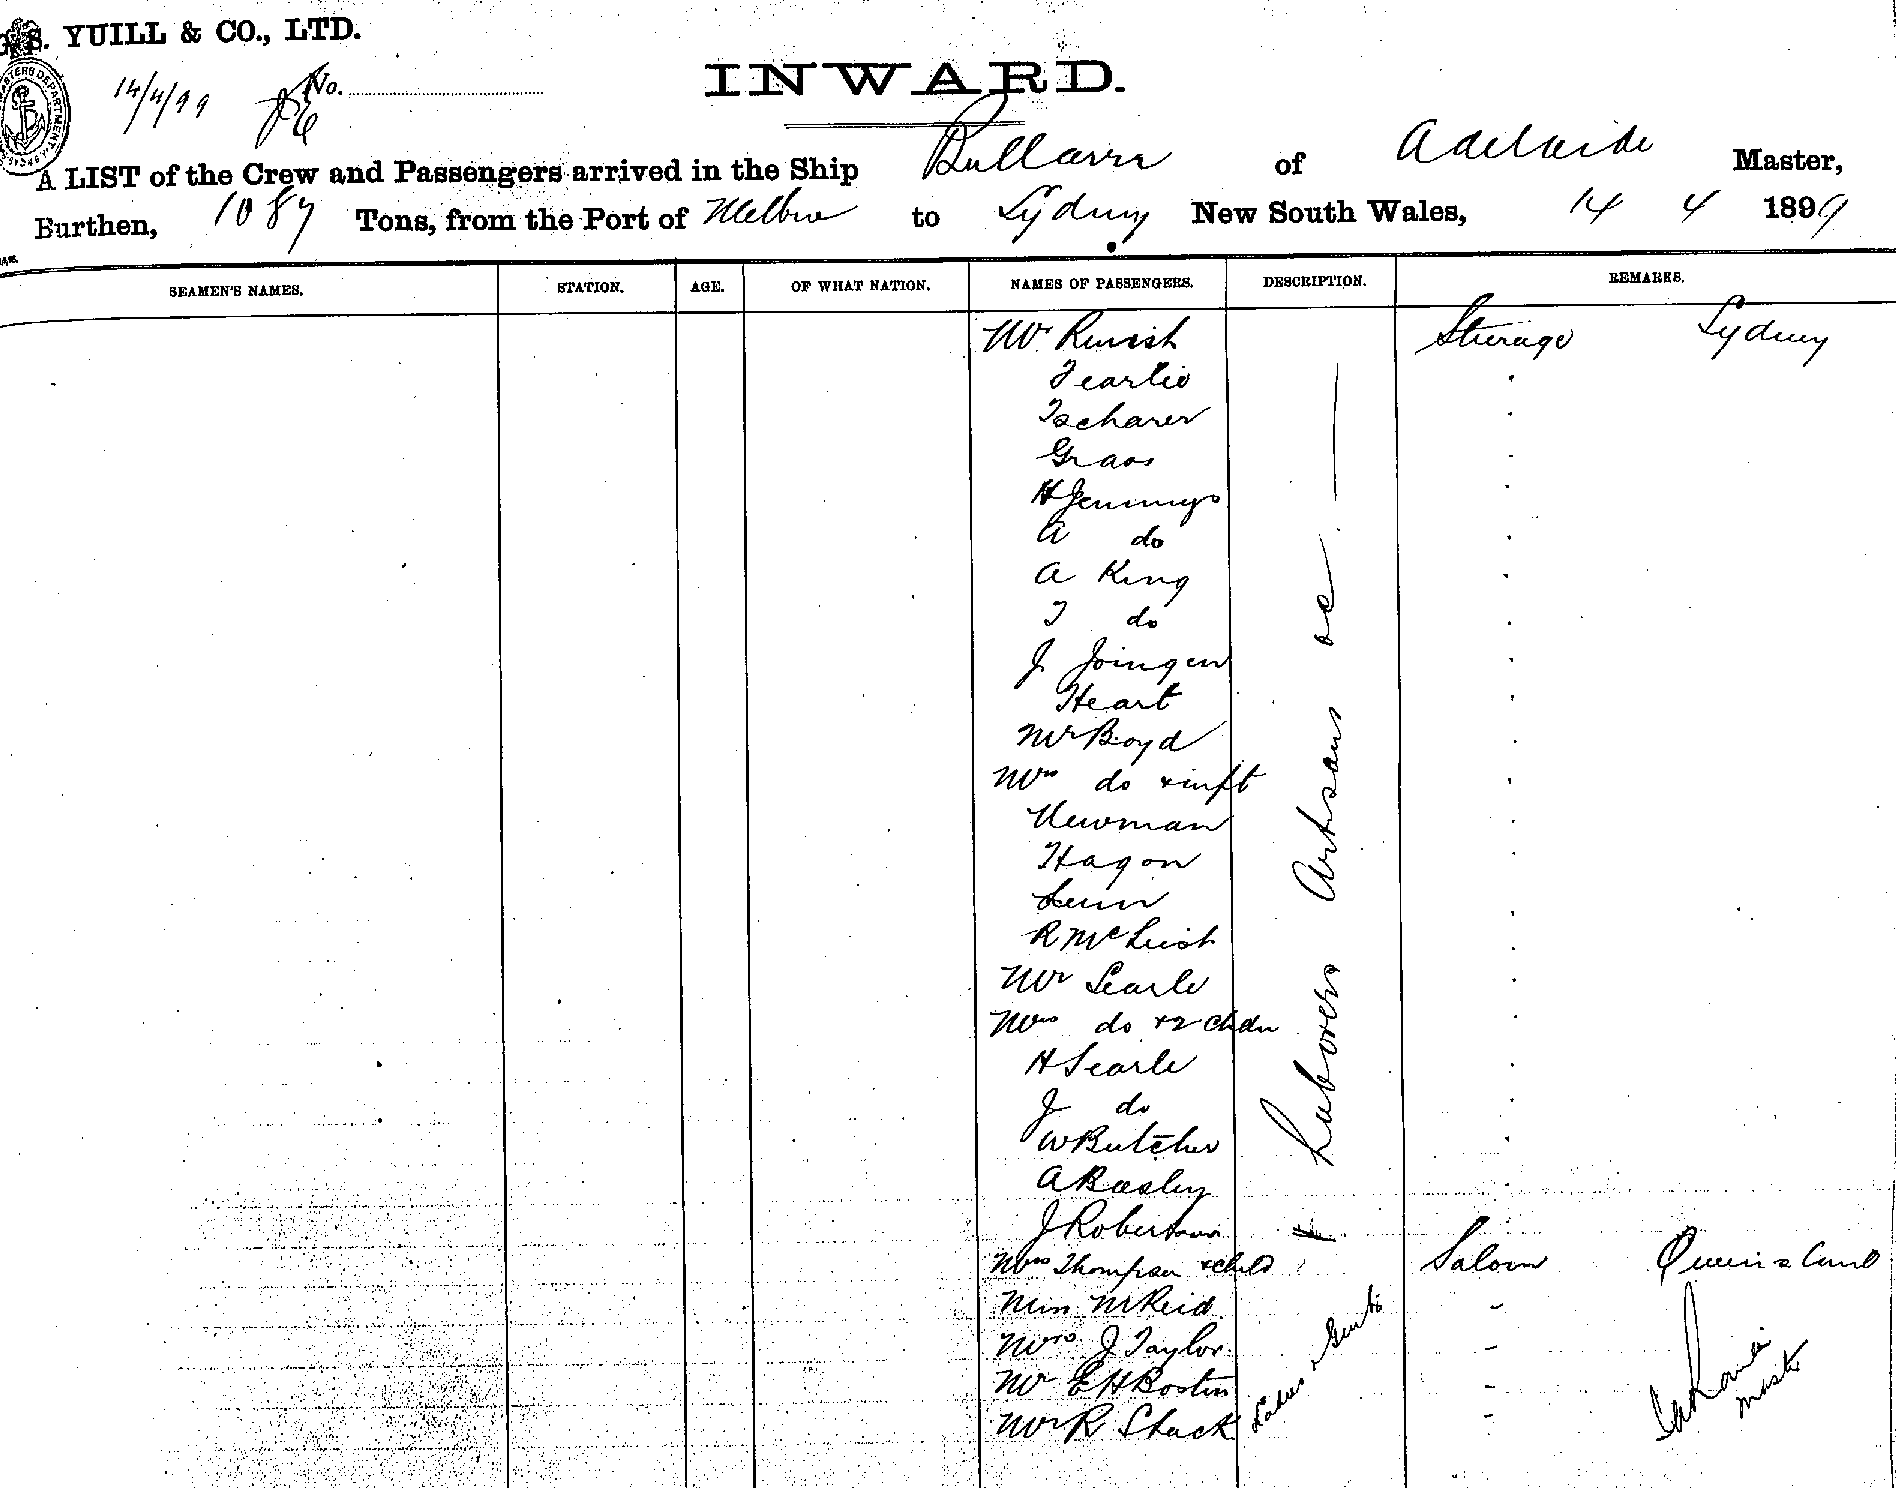 G. S. YUILL & CO., LTD.
14/4/99 No.
INWARD.
A LIST of the Crew and Passengers arrived in the Ship Bullarra of Adelaide Master,
Burthen, 1087 Tons, from the Port of Melbne to Sydney New South Wales, 14 4 1899
SEAMEN'S NAMES. STATION. AGE. OF WHAT NATION. NAMES OF PASSENGERS. DESCRIPTION. REMARKS.
Mr Steerage Sydney
Tscharer
H Jennings
A do
A King
T do
J
Heart
Mr Boyd
Mrs do & inft
Newman
Hagon
R McLeish
Mr Searle
Mrs do & 2 chdn
H Searle
J do
W Butcher
A Basley
J Robertson
Laborers Artisans &c
Mrs Thompson & child Saloon Queensland
Miss M Reid
Mrs J Taylor
Mr E H Bostin
Mr R Stuck
Ladies & Gents